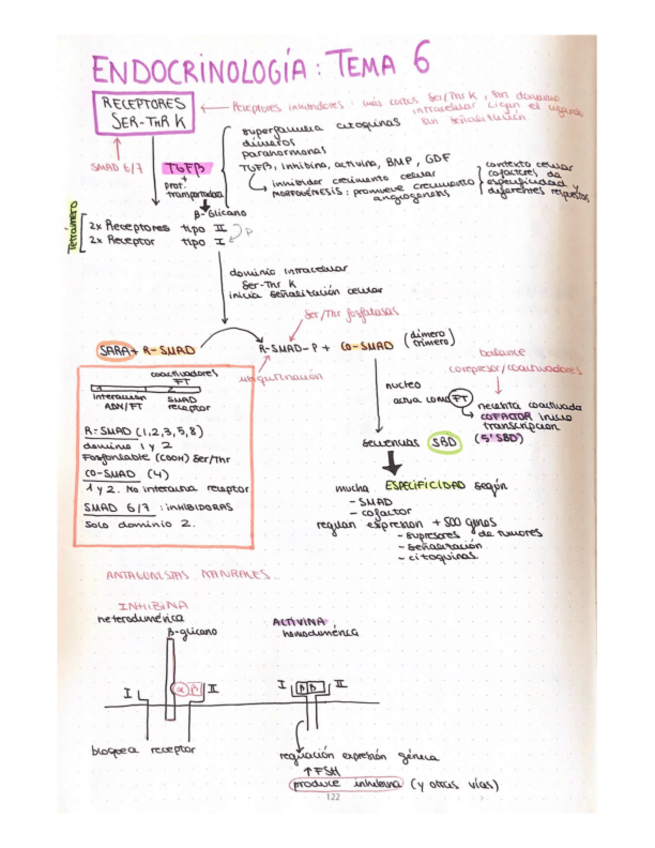 ENDOCRINOLOGÍA: TEMA 6
RECEPTORES
SER-THR K
Receptores inhibidores: más cortos Ser/Thr K, sin dominio
intracelular Ligan el ligando
sin señalización
SMAD 6/7
TGFβ
+
prot.
transportadora
superfamilia citoquinas
dímeros
parahormonas
TGFβ, inhibina, activina, BMP, GDF
inhibidor crecimiento celular
MORFOGÉNESIS: promueve crecimiento
angiogenesis
contexto celular
cofactores da
especificidad y
diferentes respuestas
β-Glicano
Tetrámero
2x Receptores tipo II
2x Receptor tipo I
P
dominio intracelular
Ser-Thr K
inicia señalización celular
Ser/Thr fosfatasas
SARA + R-SMAD
R-SMAD-P + CO-SMAD (dímero
trímero)
ubiquitinación
balance
corepresor/coactivadores
coactivadores
FT
interacción
ADN/FT
SMAD
receptor
R-SMAD (1,2,3,5,8)
dominio 1 y 2
Fosforilable (COOH) Ser/Thr
CO-SMAD (4)
1 y 2. No interactúa receptor
SMAD 6/7: INHIBIDORAS
Solo dominio 2.
nucleo
actúa como FT
necesita coactivador
COFACTOR inicio
transcripcion
secuencias SBD (5' SBD)
mucha ESPECIFICIDAD según
- SMAD
- cofactor
regulan expresion +500 genes
- supresores de tumores
- señalización
- citoquinas
ANTAGONISTAS NATURALES
INHIBINA
heterodimérica
β-glicano
I
α β
II
bloquea receptor
ACTIVINA
homodimérica
I
β β
II
regulación expresión génica
↑FSH
produce inhibina (y otras vías)
122